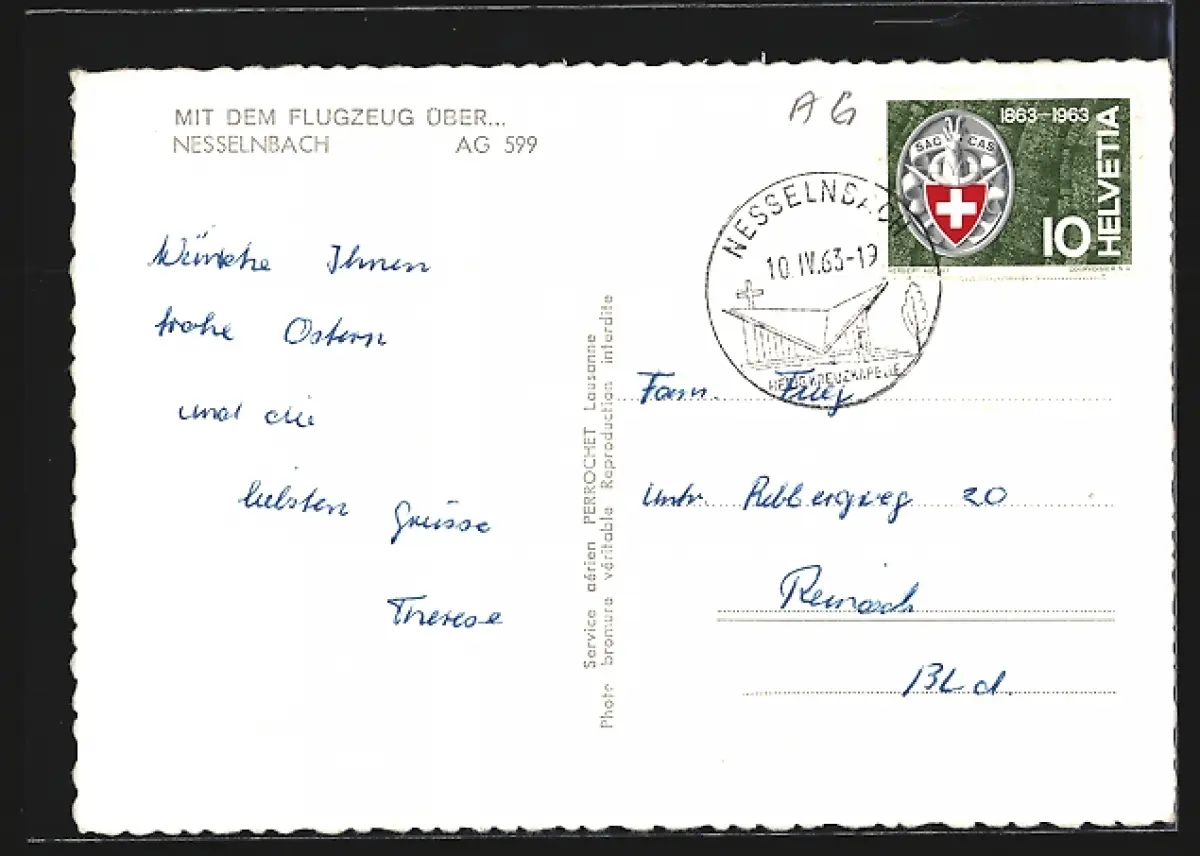 MIT DEM FLUGZEUG ÜBER...
NESSELNBACH AG 599
Wünsche Ihnen
frohe Ostern
und die
liebsten Grüsse
Therese
Service aérien PERROCHET Lausanne
Photo bromure véritable Reproduction interdite
AG
1863-1963
SAC CAS
HELVETIA
10
COURVOISIER S.A.
NESSELNBACH
10.IV.63-19
HEILIGKREUZKAPELLE
Fam.
Untr. Rebbergweg 20
Reinach
BLd.